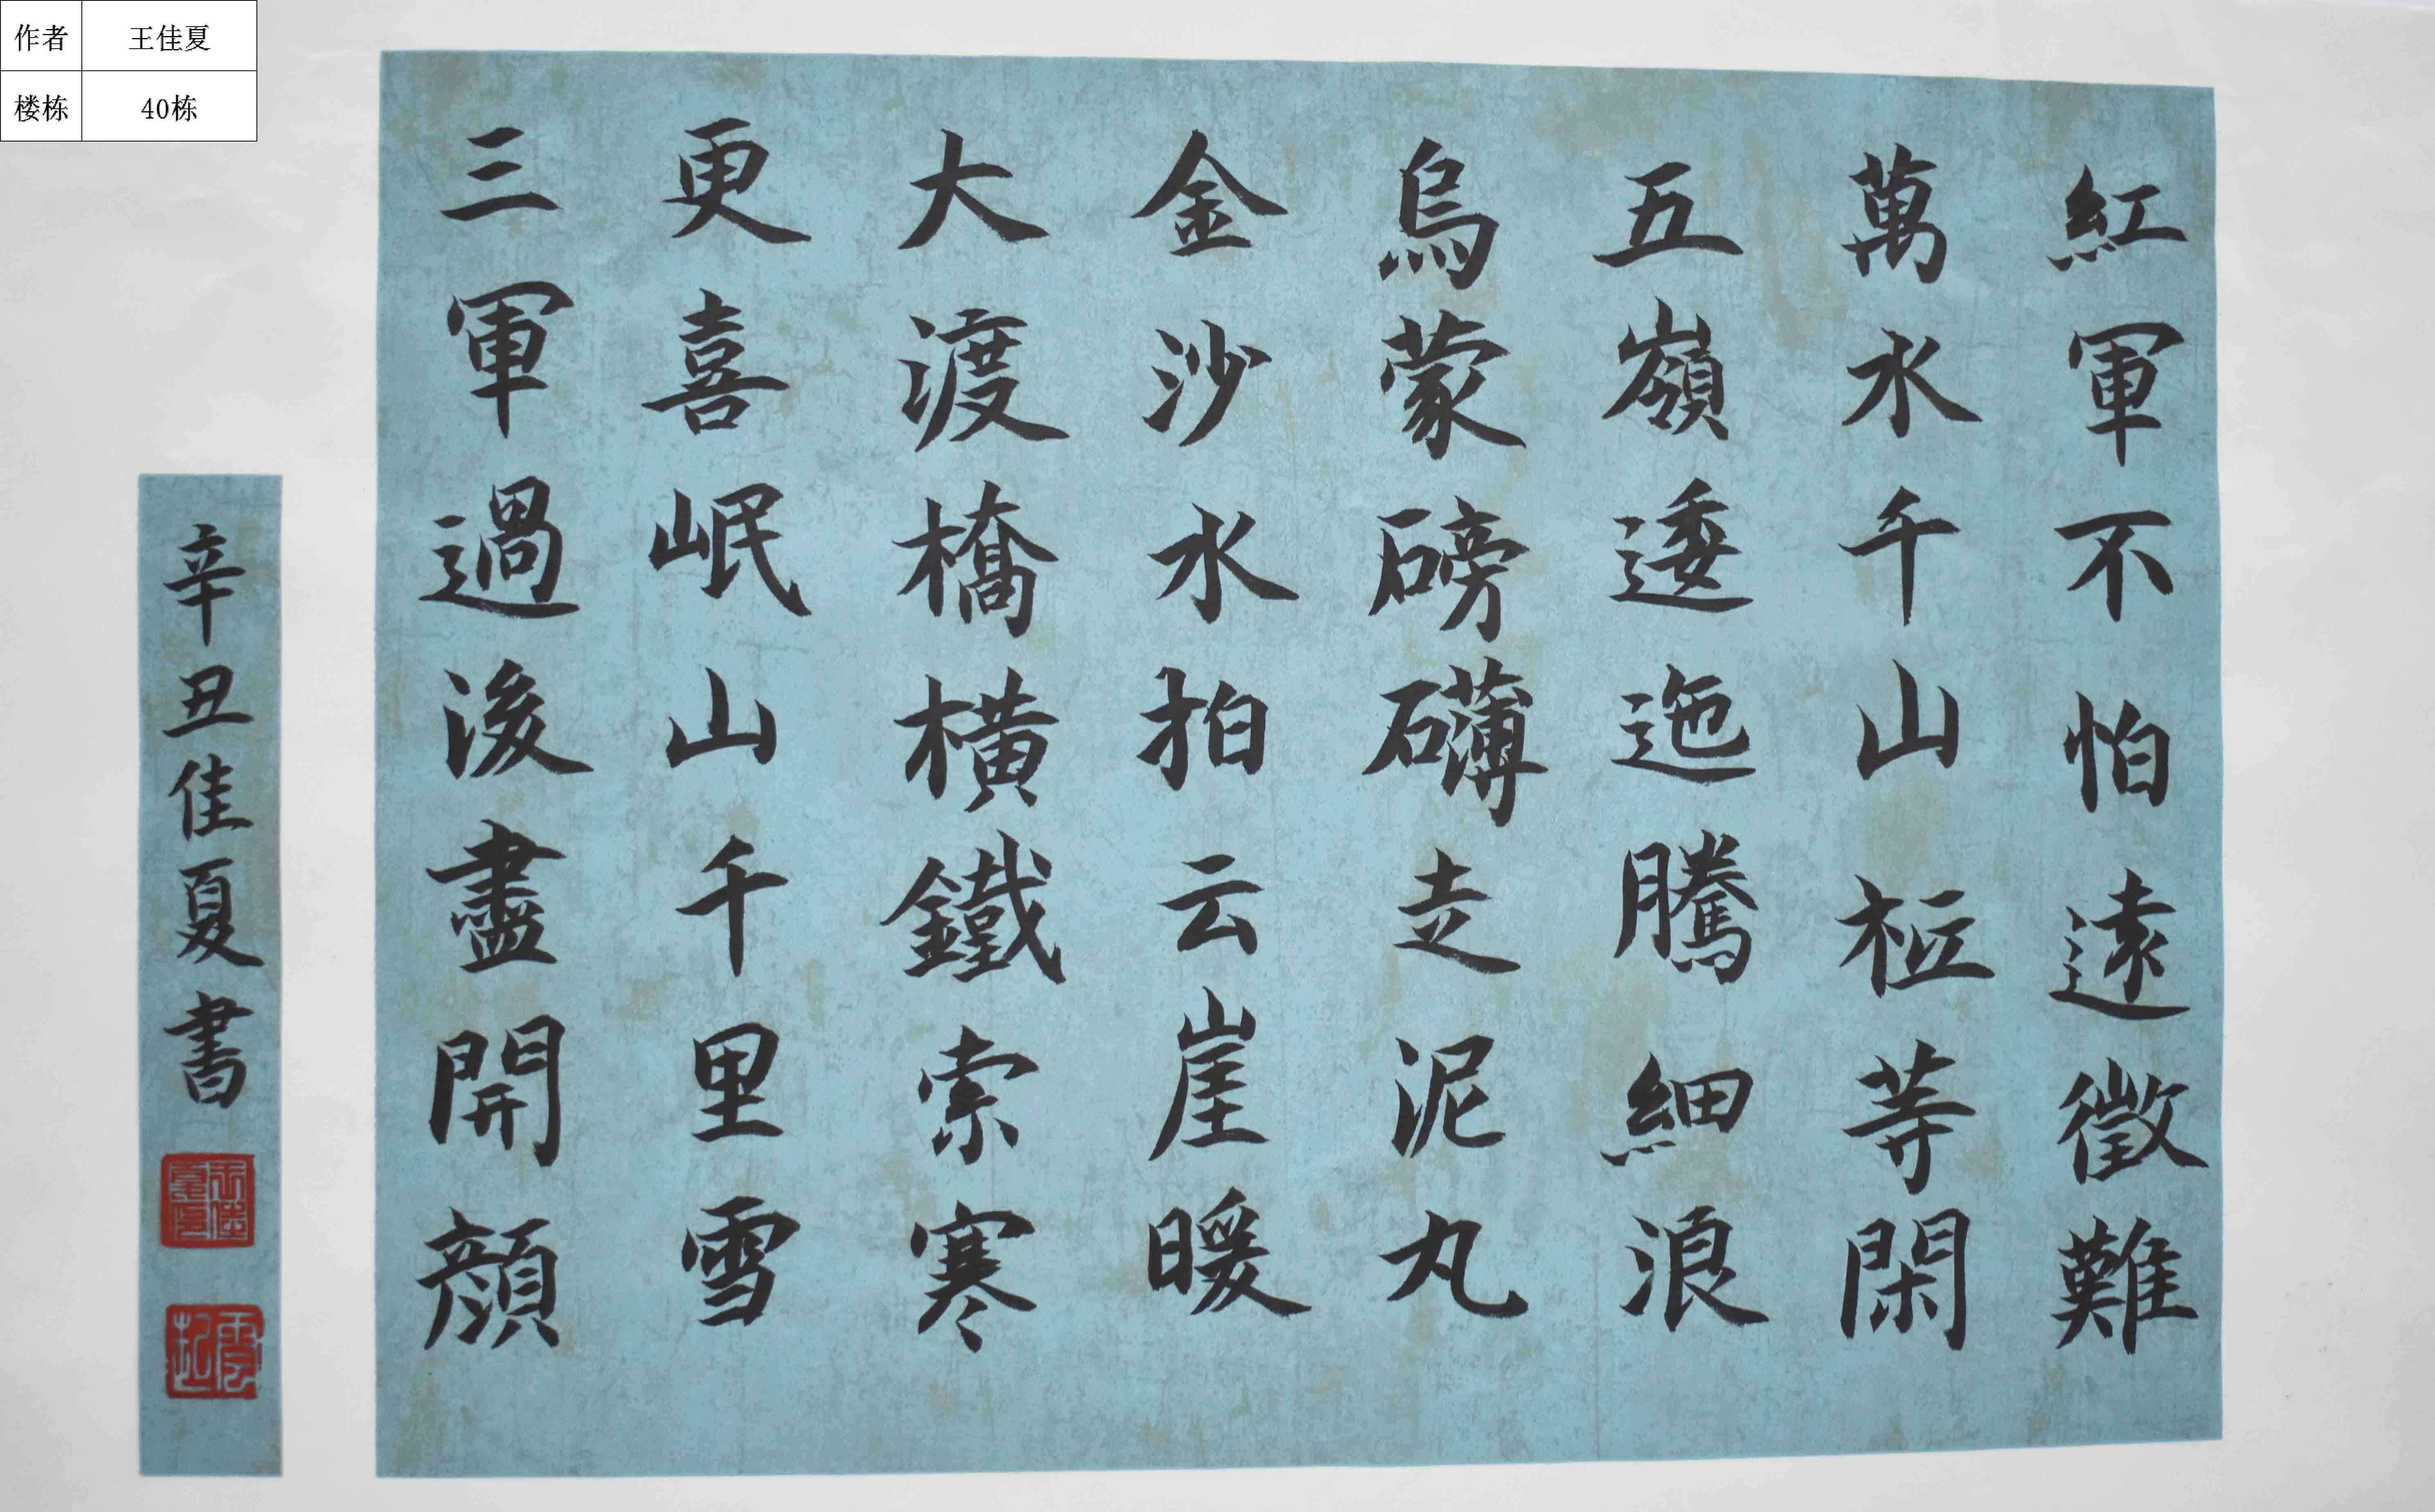 作者 王佳夏
楼栋 40栋
紅軍不怕遠徵難
萬水千山等閑
五嶺逶迤騰細浪
烏蒙磅礴走泥丸
金沙水拍云崖暖
大渡橋橫鐵索寒
更喜岷山千里雪
三軍過後盡開顏
辛丑佳夏書
王佳夏印